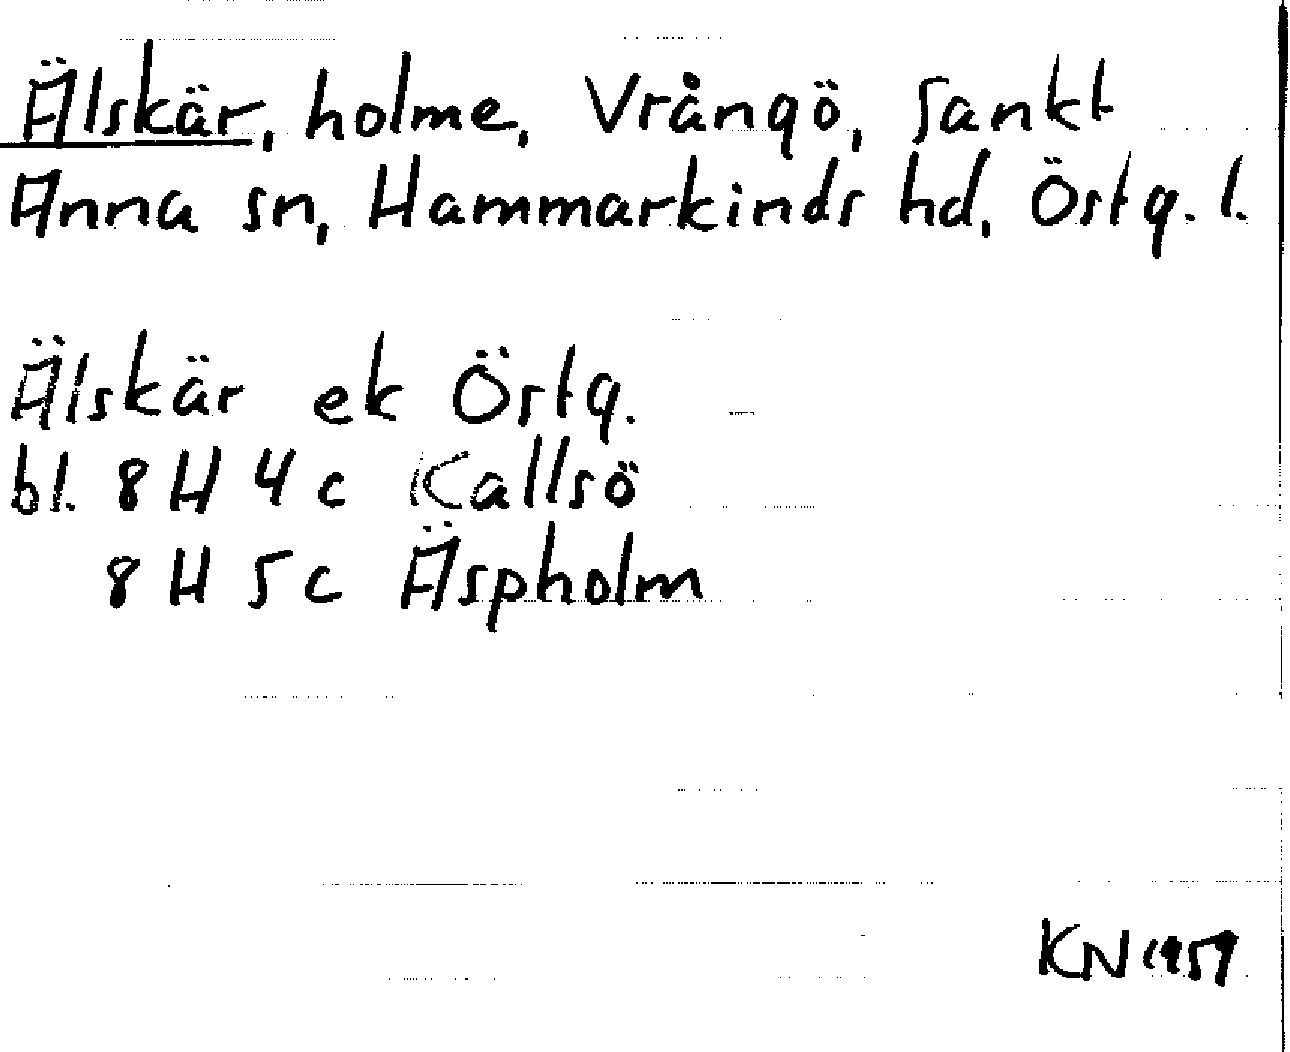 Älskär, holme, Vrångö, Sankt
Anna sn, Hammarkinds hd, Östg. l.
Älskär ek Östg.
bl. 8 H 4 c Kallsö
8 H 5 c Äspholm
KN 1957